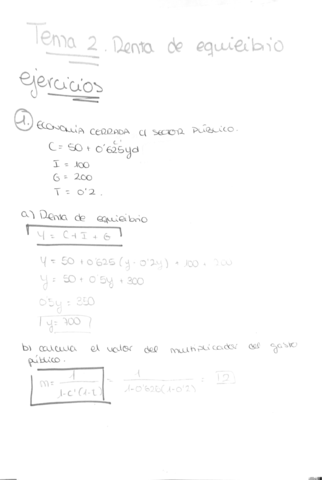 Tema 2. Renta de equilibrio
ejercicios
1. ECONOMÍA CERRADA C/ SECTOR PÚBLICO.
C = 50 + 0'625yd
I = 100
G = 200
T = 0'2.
a) Renta de equilibrio
Y = C + I + G
Y = 50 + 0'625 (y - 0'2y) + 100 + 200
y = 50 + 0'5y + 300
0'5y = 350
y = 700
b) calcula el valor del multiplicador del gasto
público.
m = 1 / 1-c'(1-t) = 1 / 1-0'625(1-0'2) = 2